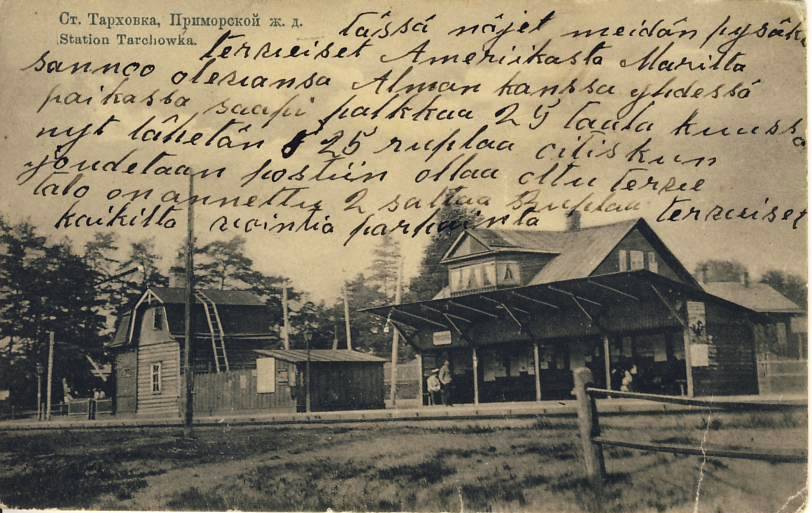 Ст. Тарховка, Приморской ж. д.
Station Tarchowka.
tässä näjet meidän pysäk
terveiset Ameriikasta Mariita
sannoo olevansa Alman kanssa yhdessä
paikassa saapi palkkaa 25 taala kuussa
nyt lähetän 25 ruplaa ottis kun
joudetaan postiin ollaa oltu terve
talo on annettu 2 sattaa ruplaa terveiset
kaikilta